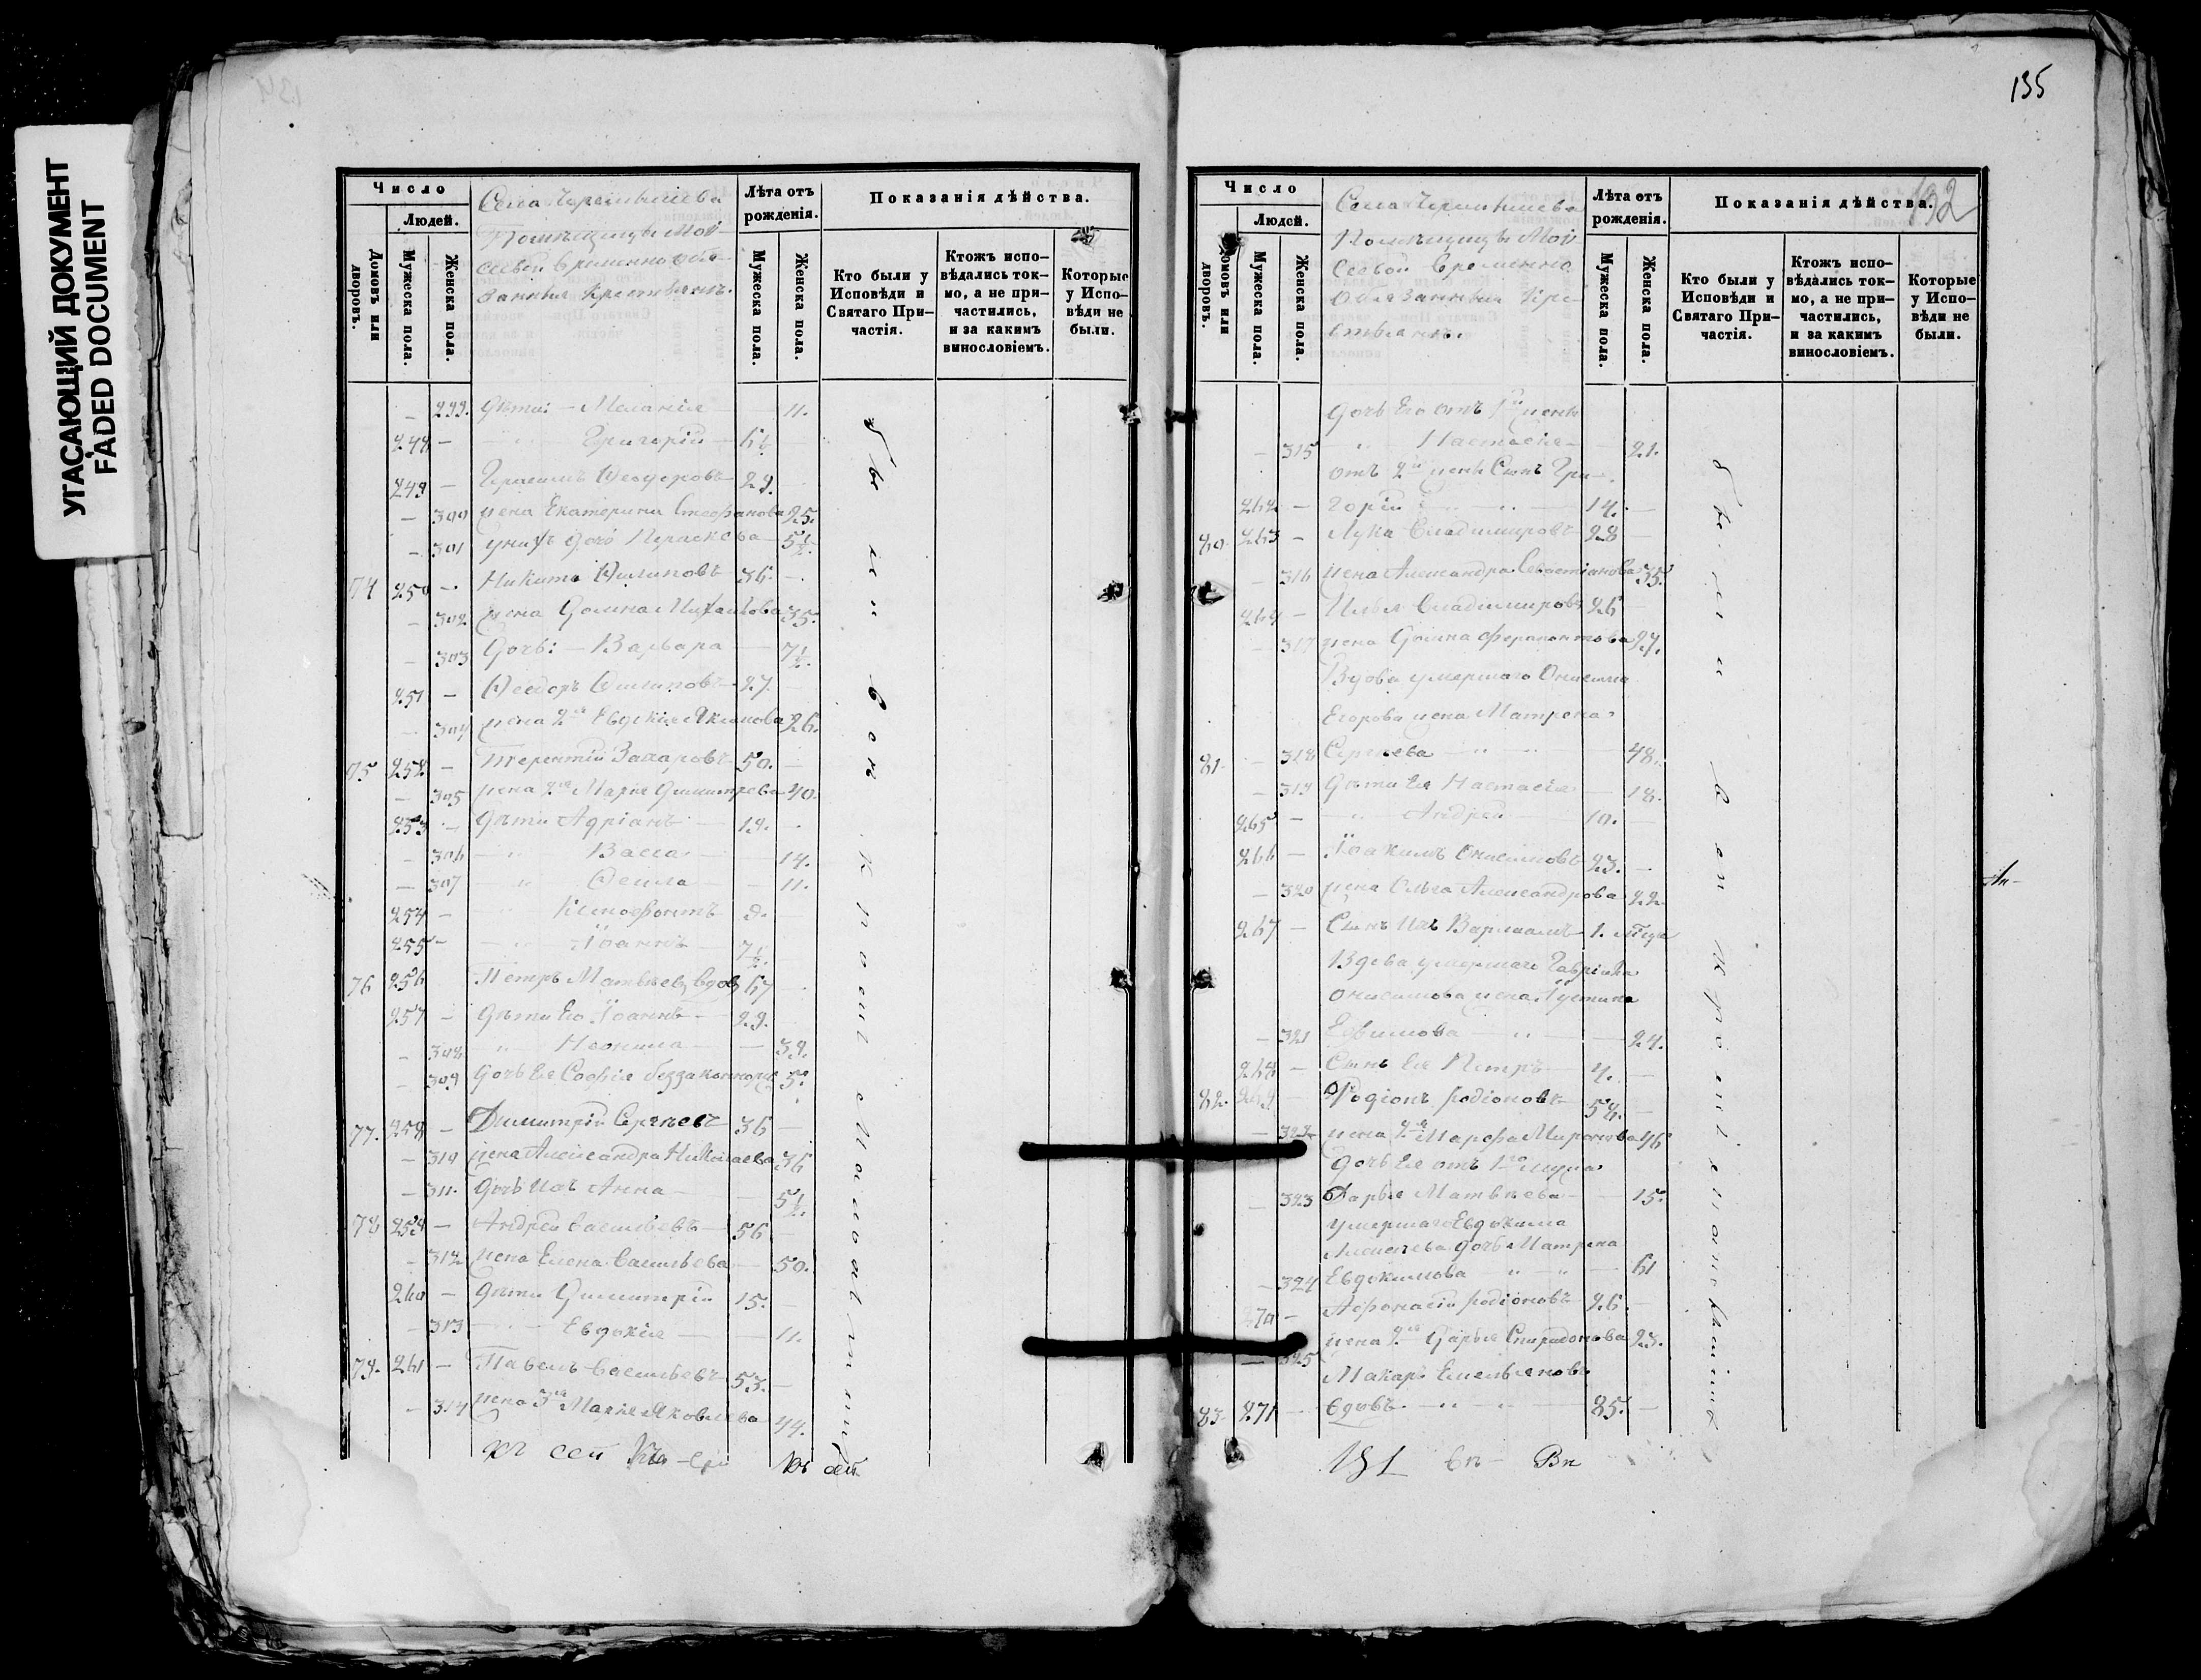 УГАСАЮЩИЙ ДОКУМЕНТ
FADED DOCUMENT
Число
Людей.
Домовъ или дворовъ.
Мужеска пола.
Женска пола.
Села
Помѣщицы Мой-
сеевой временно обя-
занные крестьяне.
Лѣта отъ рожденія.
Мужеска пола.
Женска пола.
Показанія дѣйства.
Кто были у Исповѣди и Святаго Причастія.
Ктожъ исповѣдались токмо, а не причастились, и за какимъ винословіемъ.
Которые у Исповѣди не были.
299. Дѣти: – Меланія 11.
248 – Григорій
249 – Герасимъ Ѳеодоровъ 29.
– 300 жена Екатерина Стефанова 25.
– 301 у нихъ дочь Параскева 5½
74 250 – Никита Филиповъ 36.
– 302 жена Домна Михайлова 35.
– 303 Дочь: – Варвара 7½.
251 – Ѳеодоръ Филиповъ 27.
– 304 жена 2я Евдокія Акимова 26.
75 252 – Терентій Захаровъ 50.
– 305 жена 2я Марія Димитріева 40.
253 – Дѣти Адріанъ 19.
– 306 Васса 14.
– 307 Ѳекла 11.
254 – Ксенофонтъ 9.
255 – Іоаннъ 7½.
76 256 Петръ Матвѣевъ вдовъ 67
257 – Дѣти Его Іоаннъ 29.
– 308 Неонила 39.
– 309 Дочь Ея Софія 5.
77. 258 – Димитрій Сергѣевъ 36
– 310 жена Александра Николаева 36
– 311. Дочь ихъ Анна 5½.
78 259 – Андрей Васильевъ 56
– 312 жена Елена Васильева 50.
260 – Дѣти Димитрій 15.
– 313 Евдокія 11.
79. 261 – Павелъ Васильевъ 53.
– 314 жена 3я Марія Яковлева 44.
сей
135
132
Число
Людей.
Домовъ или дворовъ.
Мужеска пола.
Женска пола.
Села
Помѣщицы Мой
сеевой временно
обязанные кре-
стьяне.
Лѣта отъ рожденія.
Мужеска пола.
Женска пола.
Показанія дѣйства.
Кто были у Исповѣди и Святаго Причастія.
Ктожъ исповѣдались токмо, а не причастились, и за какимъ винословіемъ.
Которые у Исповѣди не были.
Дочь Его отъ 1й жены
– 315 Настасія 21.
отъ 2й жены Сынъ Гри-
262. – горій 14.
80. 263 – Лука Владимировъ 28
– 316 жена Александра Севастіанова 35.
264 – Илья Владимировъ 26
– 317 жена Домна Ферапонтова 27.
Вдова умершаго Онисима
Егорова жена Матрена
81. – 318 Сергѣева 48.
– 319 Дѣти Ея Настасія 18.
265 – Андрей 10.
266 – Іоакимъ Онисимовъ 23.
– 320 жена Ольга Александрова 22
267 – Сынъ ихъ Варлаамъ 1.
Вдова умершаго Гавріила
Онисимова жена Іустина
– 321 Ефимова 24.
268 – Сынъ Ея Петръ 4.
82. 269 Родіонъ Родіоновъ 58.
– 322 жена 2я Марфа Миронова 46
Дочь Ея отъ 1го мужа
– 323 Дарья Матвѣева 15.
умершаго Евдокима
Алексѣева дочь Матрена
– 324 Евдокимова 61
270 – Афонасій Родіоновъ 26
– 325 жена 2я Дарья Спиридонова 23.
Макаръ Емельяновъ
83. 271 вдовъ 85.